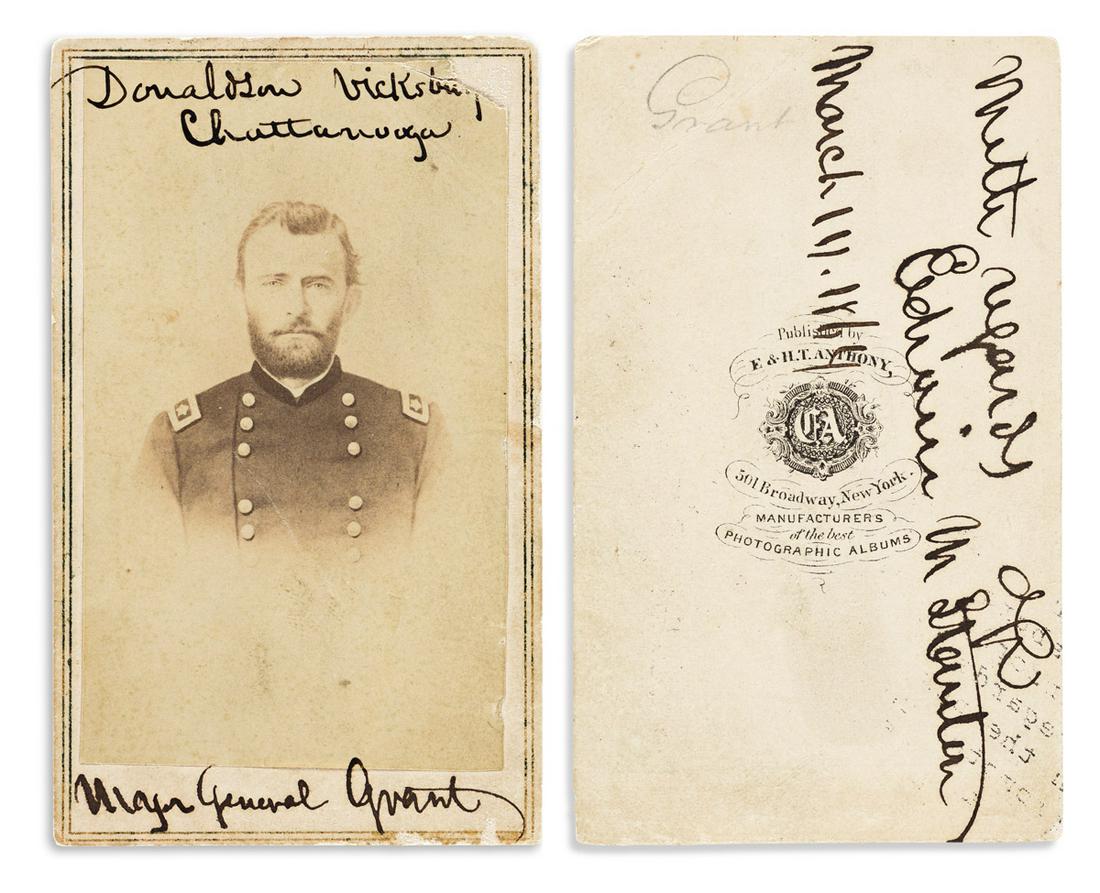 Donaldson Vicksburg
Chattanooga
Major General Grant
Grant
With regards of
Edwin M Stanton
March
Published by
E & H.T. ANTHONY,
EA
501 Broadway, New York.
MANUFACTURERS
of the best
PHOTOGRAPHIC ALBUMS
the